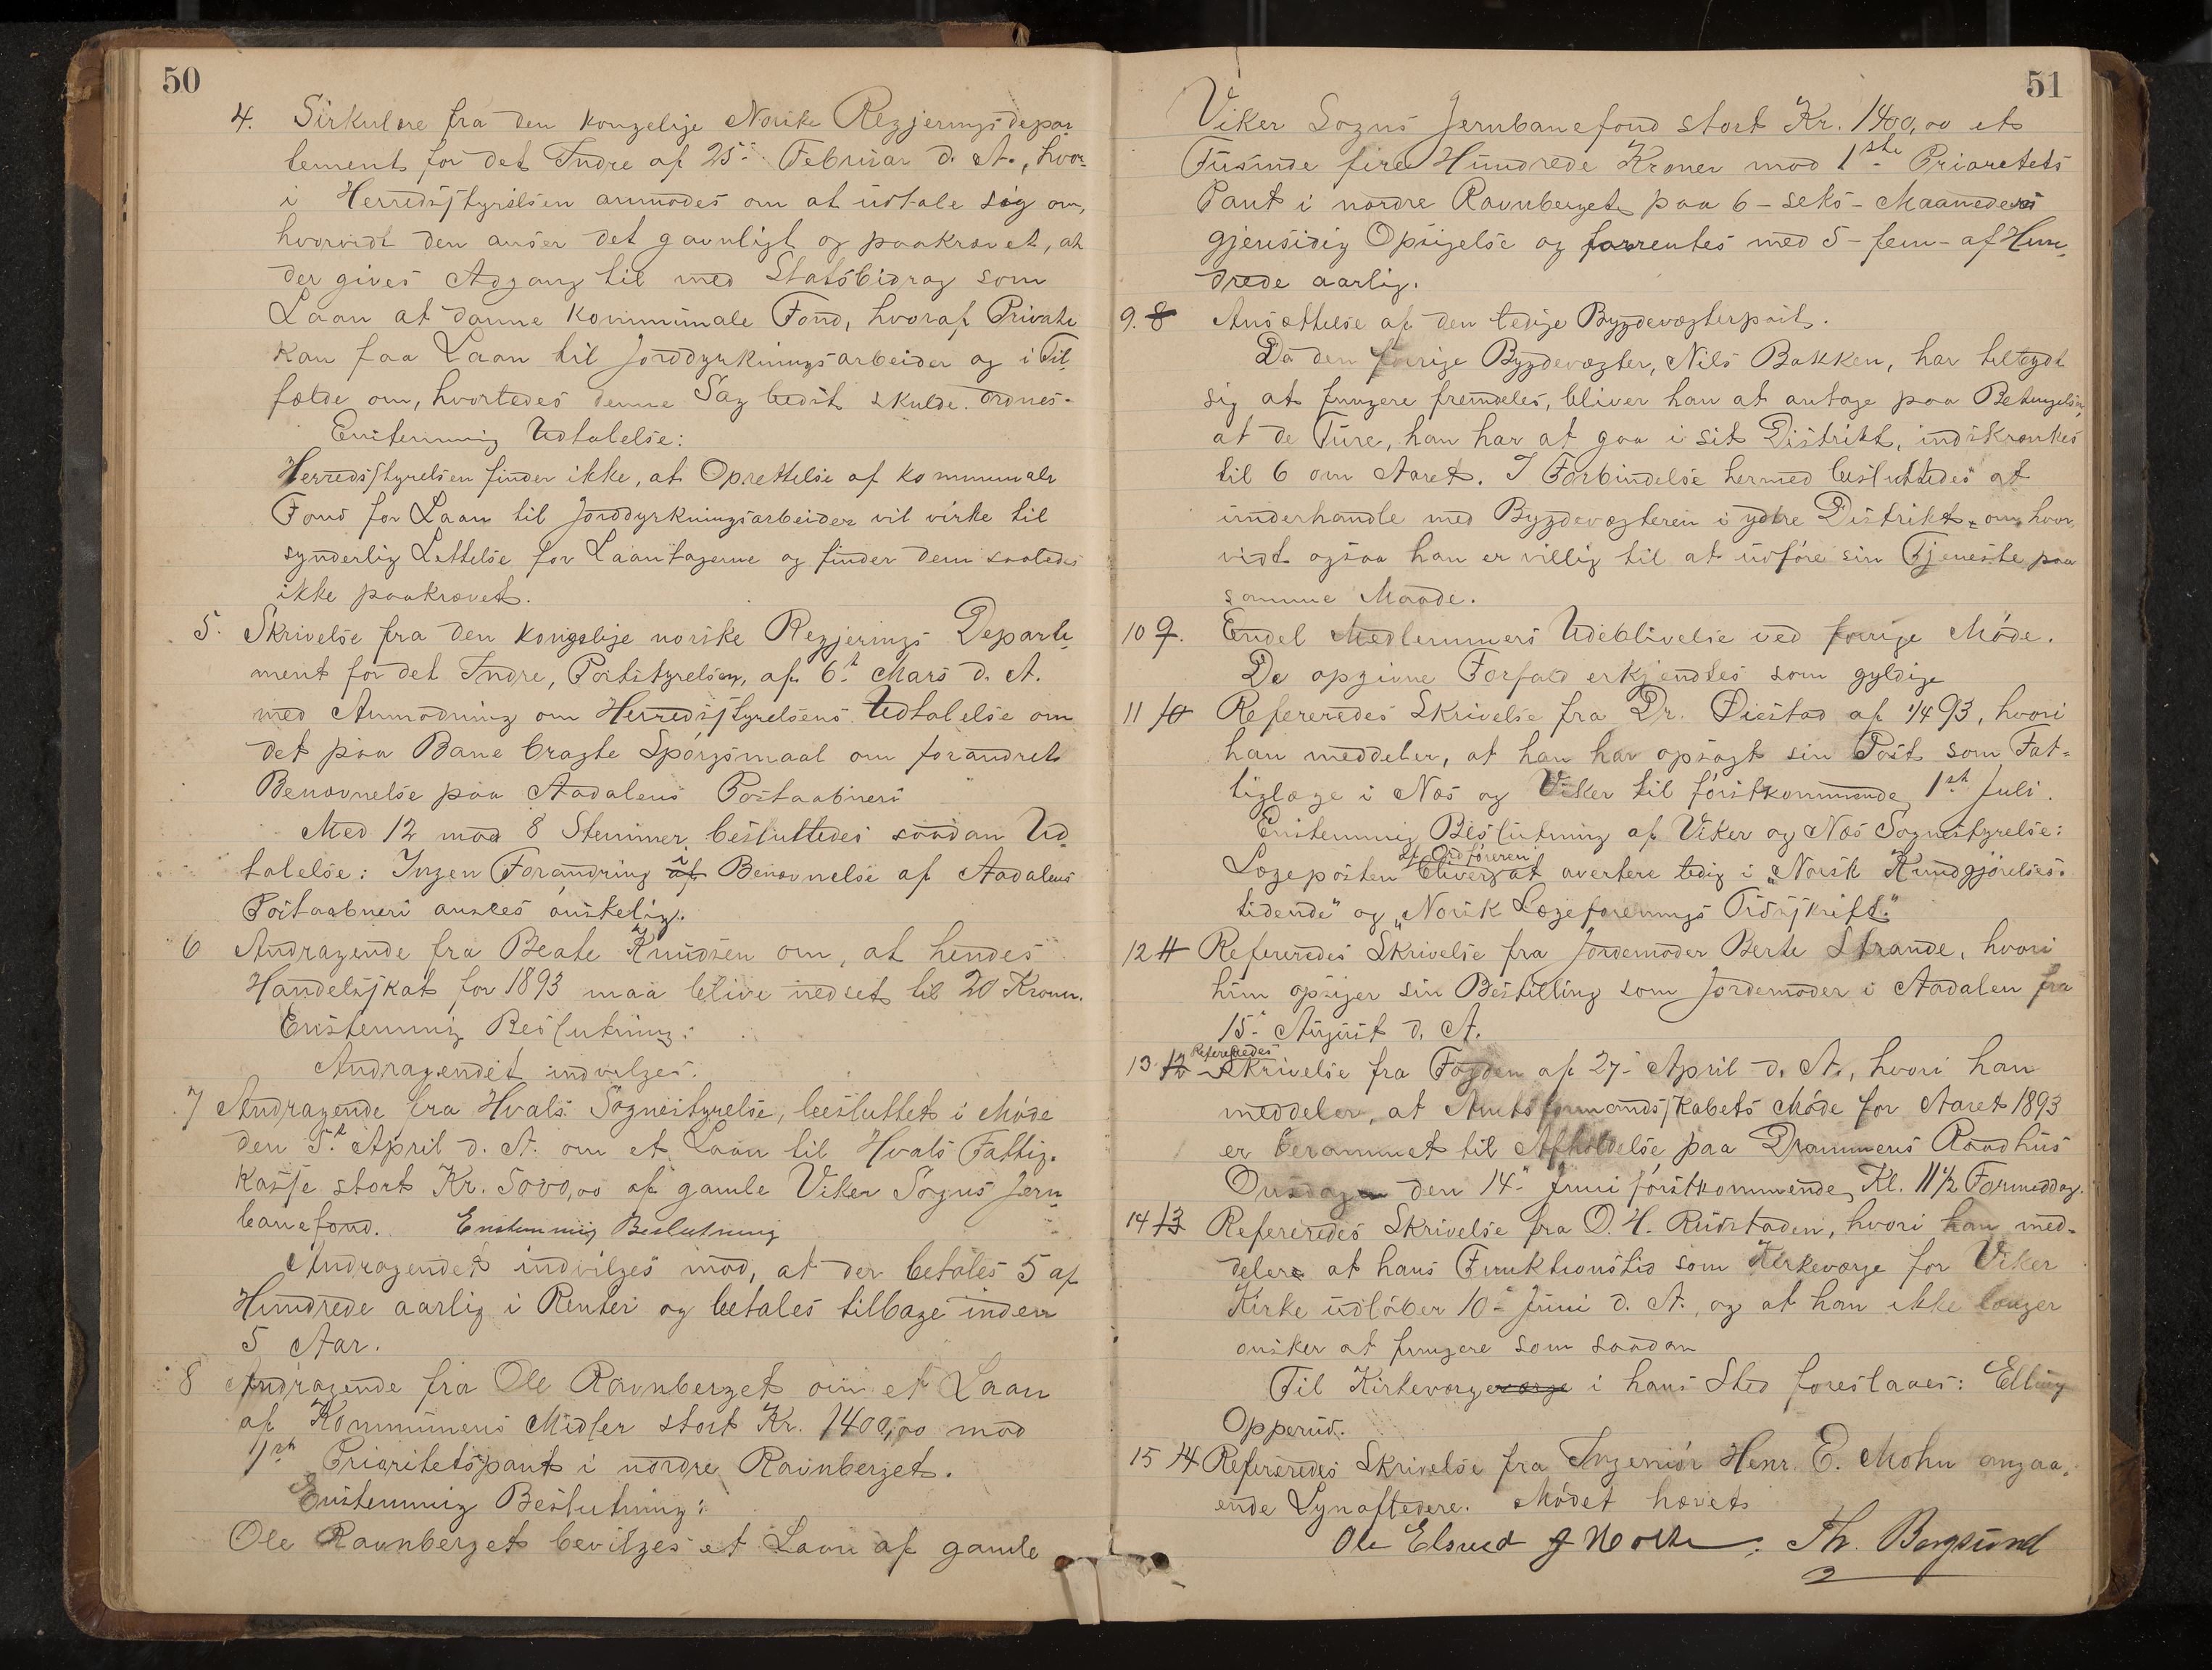 50
4. Sirkulære fra den kongelige Norske Regjeringsdepar
tement for det Indre af 25de Februar d. A., hvor-
i Herredsstyrelsen anmodes om at udtale sig om,
hvorvidt den anser det gavnligt og paakrævet, at
der gives Adgang til med Statsbidrag som
Laan at danne kommunale Fond, hvoraf Private
kan faa Laan til Jorddyrkningsarbeider og i Til-
fælde om, hvorledes denne Sag bedst skulde ordnes.
Enstemmig Udtalelse:
Herredsstyrelsen finder ikke, at Oprettelse af kommunale
Fond for Laan til Jorddyrkningsarbeider vil virke til
synderlig Lettelse for Laantagerne og finder dem saaledes
ikke paakrævet.
5. Skrivelse fra den kongelige norske Regjerings Departe-
ment for det Indre, Poststyrelsen, af 6t Mars d. A.
med Anmodning om Herredsstyrelsens Udtalelse om
det paa Bane bragte Spórgsmaal om forandret
Benævnelse paa Aadalens Postaabneri
Med 12 mod 8 Stemmer besluttedes saadan Ud-
talelse: Ingen Forandring i af Benævnelse af Aadalens
Postaabneri ansees ónskelig.
6 Andragende fra Beate Knudsen om, at hendes
Handelsskat for 1893 maa blive nedset til 20 Kroner.
Enstemmig Beslutning:
Andragendet indvilges.
7 Andragende fra Hvals Sognestyrelse, besluttet i Móde
den 5t April d. A. om et Laan til Hvals Fattig-
kasse stort Kr. 5000,00 af gamle Viker Sogns Jern-
banefond. Enstemmig Beslutning
Andragendet indvilges mod, at der betales 5 af
Hundrede aarlig i Renter og betales tilbage inden
5 Aar.
8 Andragende fra Ole Ravnberget om et Laan
af Kommunens Midler stort Kr. 1400,00 mod
1ste Prioritetspant i nordre Ravnberget.
Enstemmig Beslutning:
Ole Ravnberget bevilges et Laan af gamle
51
Viker Sogns Jernbanefond stort Kr. 1400,00 et
Tusinde fire Hundrede Kroner mod 1ste Prioretets
Pant i nordre Ravnberget paa 6 - seks - Maaneders
gjensidig Opsigelse og forrentes med 5 - fem - af Hun-
drede aarlig.
9. 8 Ansættelse af den ledige Bygdevægterpost.
Da den forrige Bygdevægter, Nils Bakken, har tilbydt
sig at fungere fremdeles, bliver han at antage paa Betingelse,
at de Ture, han har at gaa i sit Distrikt, indskrænkes
til 6 om Aaret. I Forbindelse hermed besluttedes at
underhandle med Bygdevægteren i ydtre Distrikt om, hvor-
vidt ogsaa han er villig til at udfóre sin Tjeneste paa
samme Maade.
10 9. Endel Medlemmers Udeblivelse ved forrige Móde.
De opgivne Forfald erkjendtes som gyldige
11 10 Refereredes Skrivelse fra Dr. Diestad af 1/4 93, hvori
han meddeler, at han har opsagt sin Post som Fat-
tiglæge i Næs og Viker til fórstkommende 1ste Juli.
Enstemmig Beslutning af Viker og Næs Sognestyrelse:
Lægeposten bliver af Ordfóreren at avertere ledig i „Norsk Kundgjórelses-
tidende" og „Norsk Lægeforenings Tidsskrift."
12 11 Refereredes Skrivelse fra Jordemoder Berte Strande, hvori
hun opsiger sin Bestilling som Jordemoder i Aadalen fra
15de August d. A.
13 12 Refereredes Skrivelse fra Fogden af 27de April d. A., hvori han
meddeler, at Amtsformandsskabets Móde for Aaret 1893
er berammet til Afholdelse paa Drammens Raadhus
Onsdag den 14de Juni fórstkommende, Kl. 11 1/2 Formiddag.
14 13 Refereredes Skrivelse fra O. H. Rudstaden, hvori han med-
deler at hans Funktionstid som Kirkeværge for Viker
Kirke udlóber 10de Juni d. A., og at han ikke længer
ónsker at fungere som saadan
Til Kirkeværge værge i hans Sted foreslaaes: Elling
Opperud.
15 14 Refereredes Skrivelse fra Ingeniór Henr. E. Mohn angaa-
ende Lynafledere. Módet hævet
Ole Elsrud J Th. Bergsund